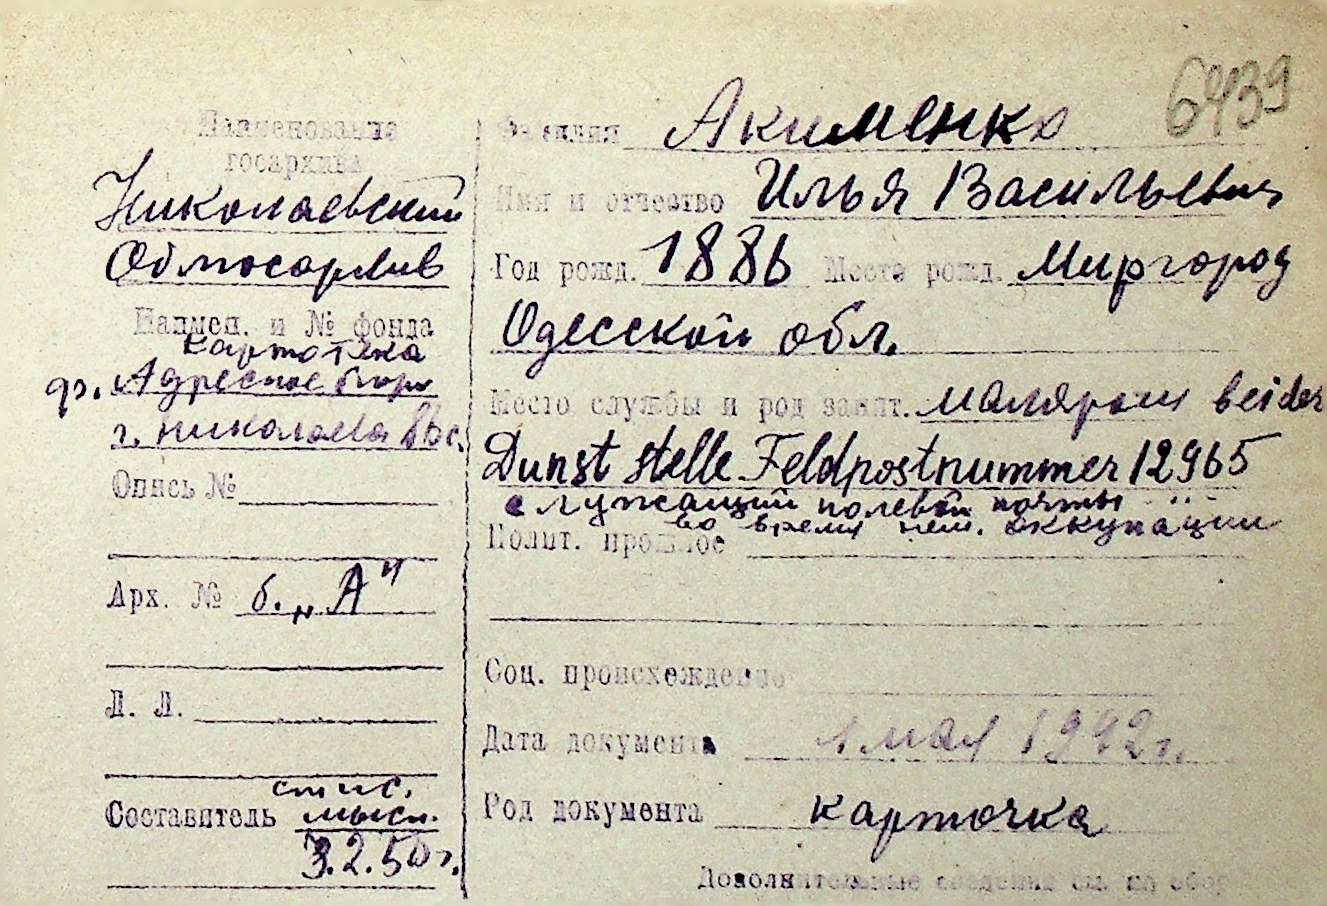 6439
Наименование
госархива
Николаевский
Облгосархив
Наимен. и № фонда
картотека
ф. Адресное бюро
г. Николаева
Опись №
Арх. № б. „А"
Л. Л.
Составитель
3.2.50 г.
Фамилия Акименко
Имя и отчество Илья Васильевич
Год рожд. 1886 Место рожд. Миргород
Одесской обл.
Место службы и род занят. маляром bei der
Dunst stelle Feldpostnummer 12965
служащий полевой почты
во время нем. оккупации
Полит. прошлое
Соц. происхождение
Дата документа 1 мая 1942 г.
Род документа карточка
Дополнительные сведения см. на обор